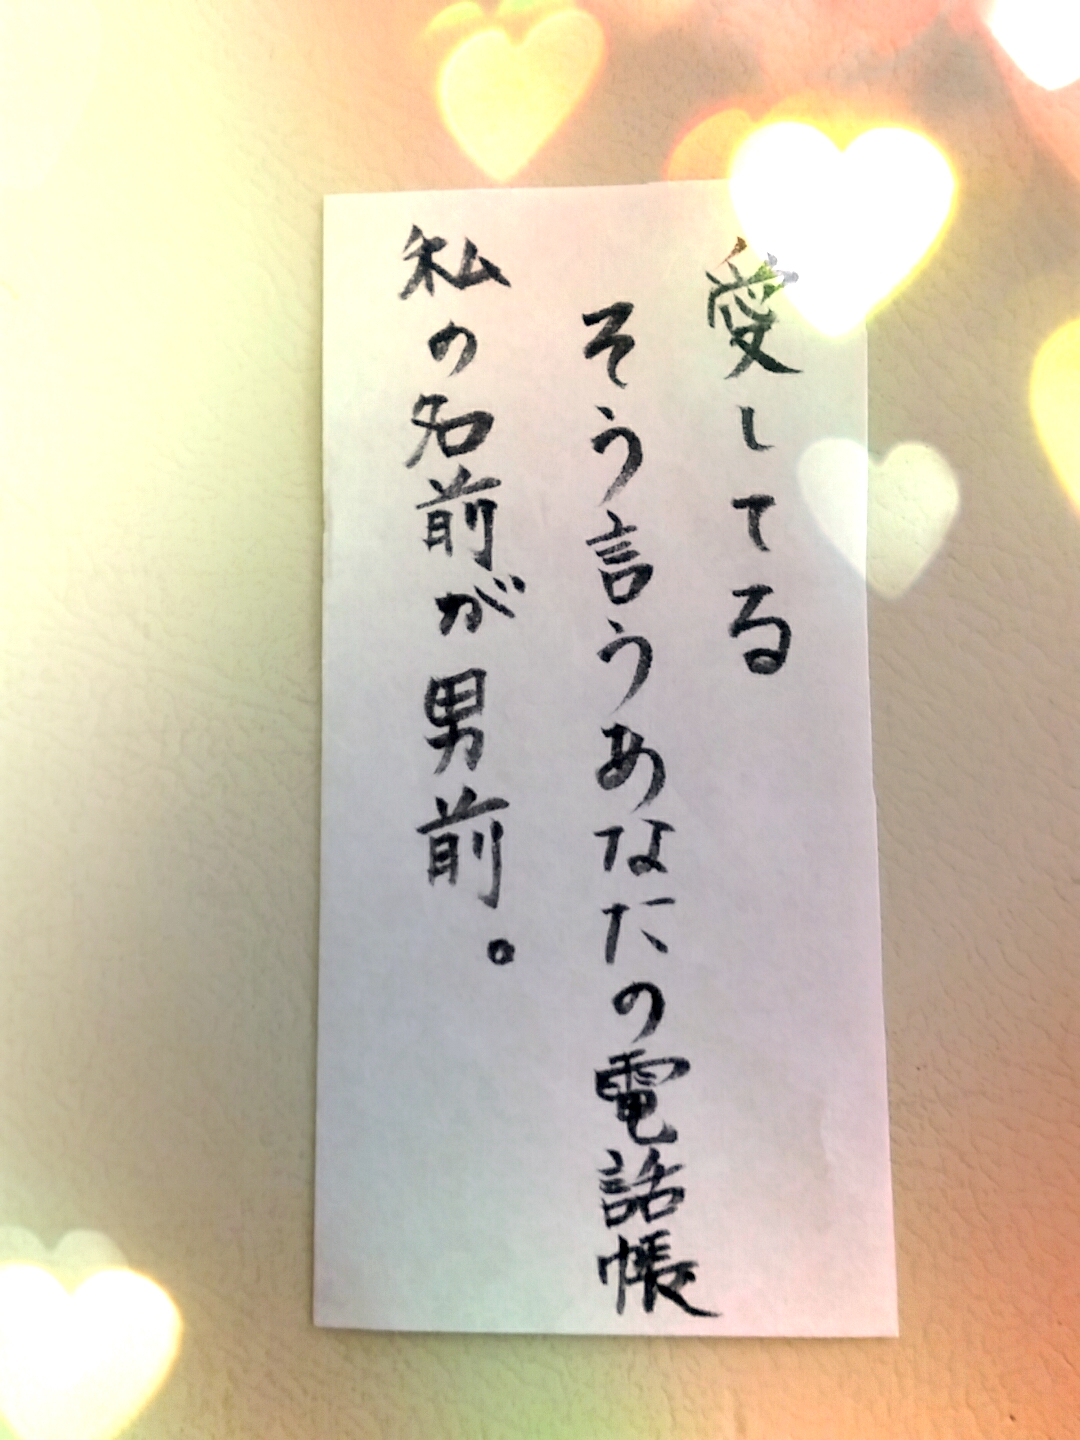 愛してる
そう言うあなたの電話帳
私の名前が男前。